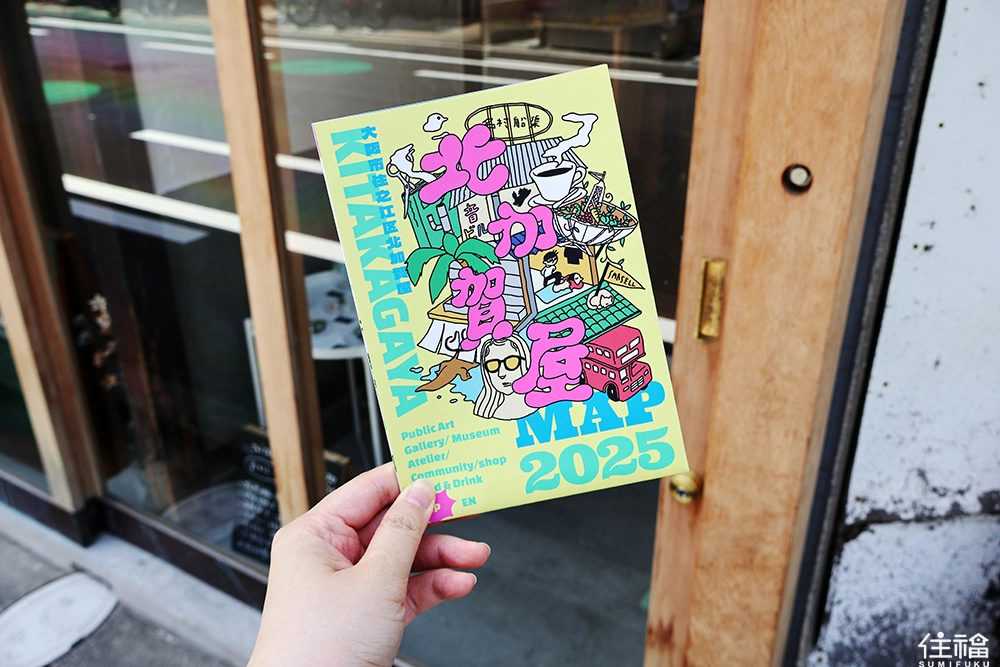 北加賀屋
KITAKAGAYA
音ビル
MAP
2025
Public Art
Gallery/ Museum
Atelier/
Community/shop
& Drink
EN
住福
SUMIFUKU